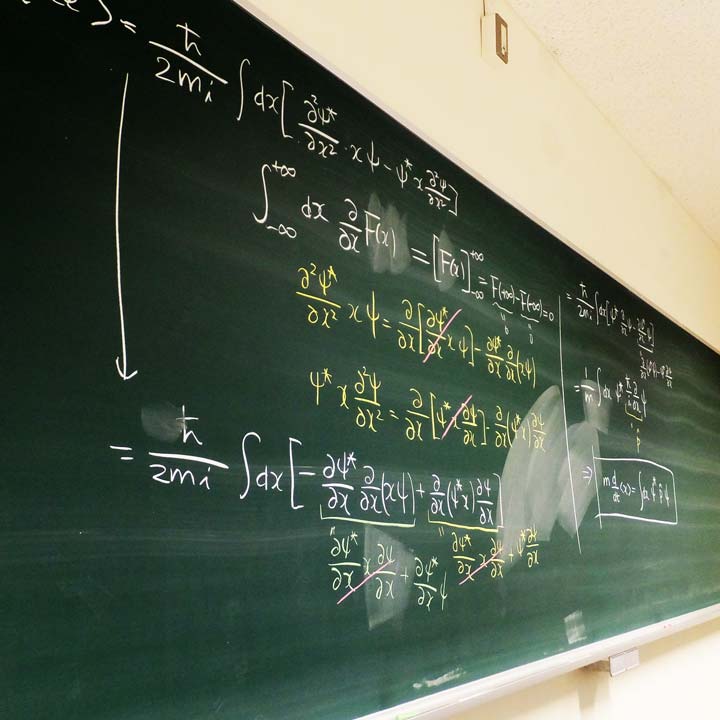 = ħ/2mi ∫dx[∂²ψ*/∂x² · xψ - ψ* x ∂²ψ/∂x²]
∫_{-∞}^{+∞} dx ∂/∂x F(x) = [F(x)]_{-∞}^{+∞} = F(+∞) - F(-∞) = 0
" 0 " 0
∂²ψ*/∂x² xψ = ∂/∂x[∂ψ*/∂x xψ] - ∂ψ*/∂x ∂/∂x(xψ)
ψ* x ∂²ψ/∂x² = ∂/∂x[ψ* x ∂ψ/∂x] - ∂/∂x(ψ* x) ∂ψ/∂x
= ħ/2mi ∫dx[-∂ψ*/∂x ∂/∂x(xψ) + ∂/∂x(ψ* x) ∂ψ/∂x]
" ∂ψ*/∂x x ∂ψ/∂x + ∂ψ*/∂x ψ
" ∂ψ*/∂x x ∂ψ/∂x + ψ* ∂ψ/∂x
= ħ/2mi ∫dx[ψ* ∂ψ/∂x - ∂ψ*/∂x ψ]
= 1/m ∫dx ψ* ħ/i ∂/∂x ψ
p̂
⇒ m d/dt⟨x⟩ = ∫dx ψ* p̂ ψ